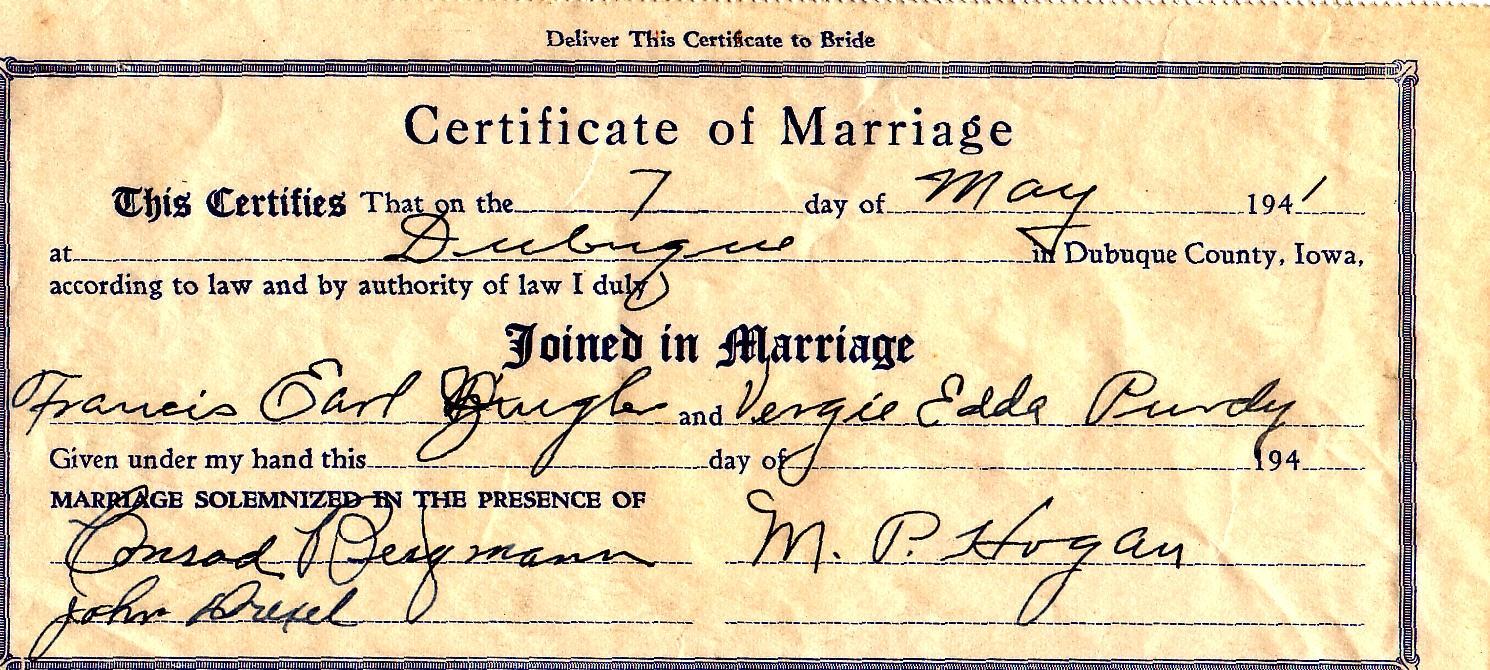 Deliver This Certificate to Bride
Certificate of Marriage
This Certifies That on the 7 day of May 1941
at Dubuque in Dubuque County, Iowa,
according to law and by authority of law I duly
Joined in Marriage
Francis Earl and Vergie Edda Purdy
Given under my hand this day of 194
MARRIAGE SOLEMNIZED IN THE PRESENCE OF
Conrad Bergmann M. P. Hogan
John Drexel